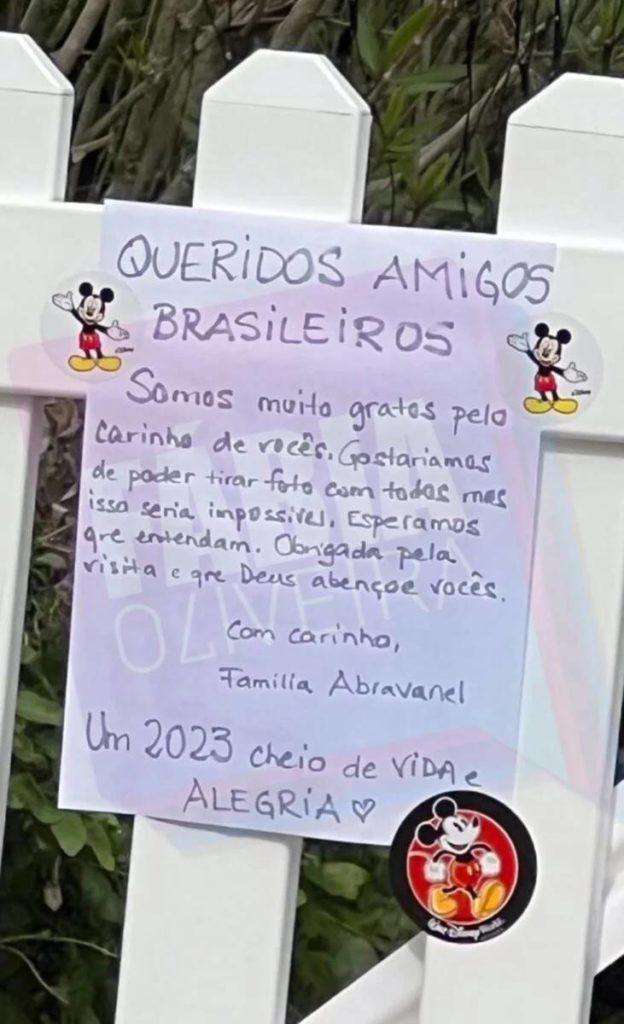 QUERIDOS AMIGOS
BRASILEIROS
Somos muito gratos pelo
carinho de vocês. Gostariamos
de poder tirar foto com todos mas
isso seria impossível. Esperamos
que entendam. Obrigada pela
visita e que Deus abençoe vocês.
Com carinho,
Familia Abravanel
Um 2023 cheio de ViDA e
ALEGRIA ♡
FÁBIA
OLIVEIRA
Walt Disney World